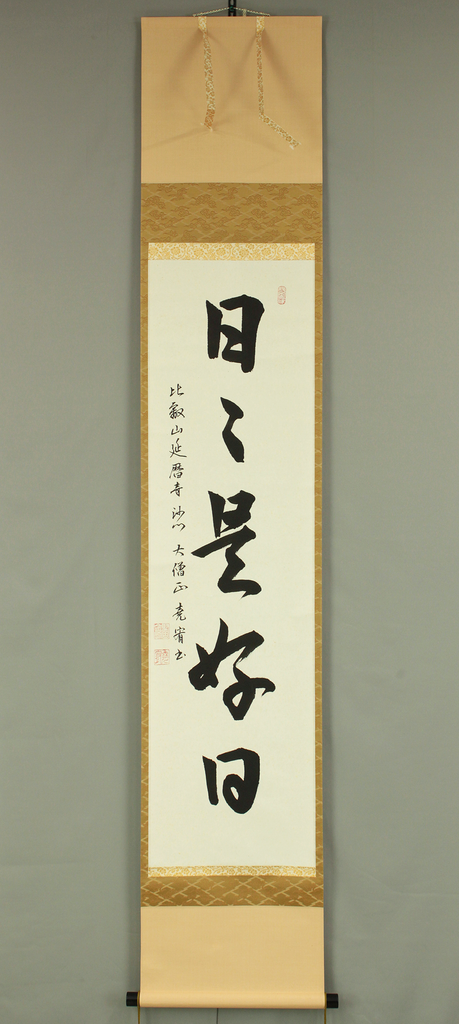 日々是好日
比叡山延暦寺 沙門 大僧正 尭宥書